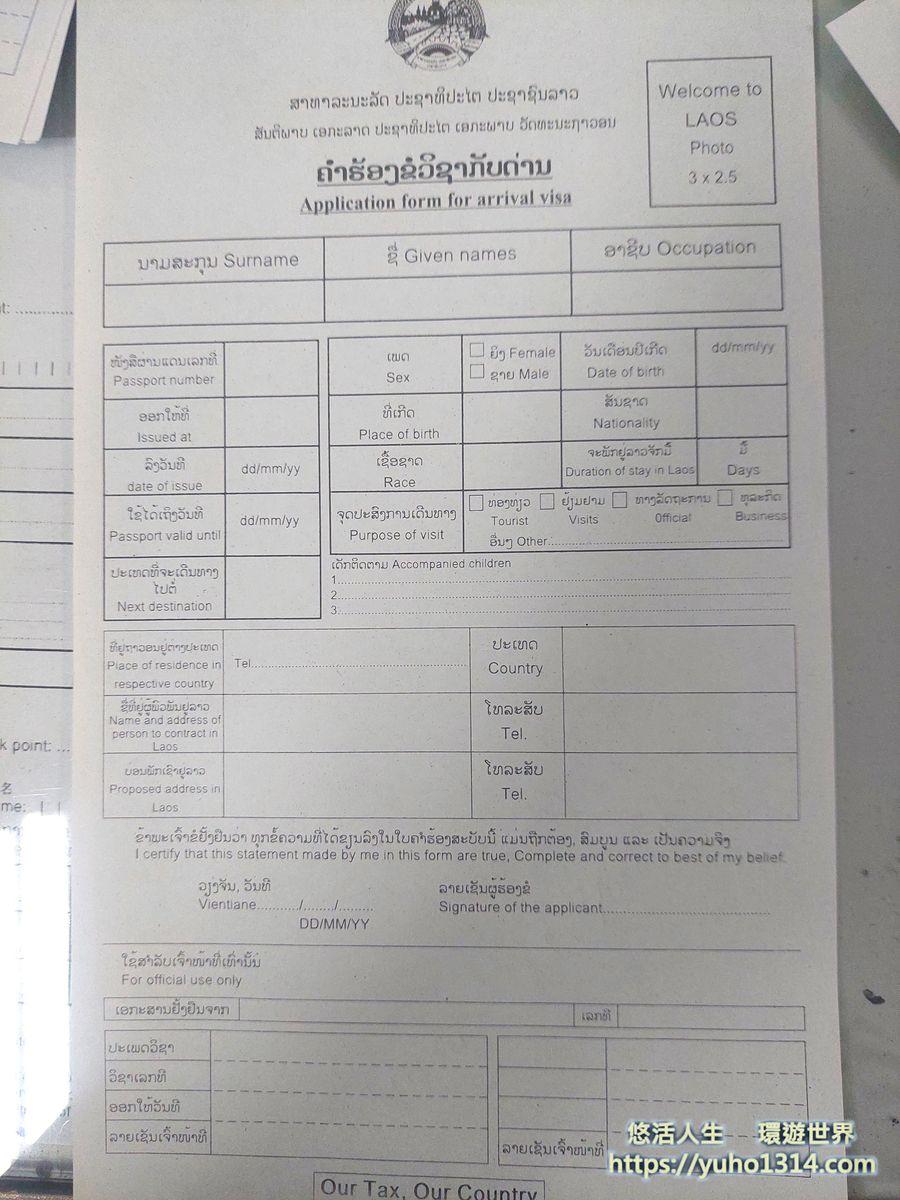 ສາທາລະນະລັດ ປະຊາທິປະໄຕ ປະຊາຊົນລາວ
ສັນຕິພາບ ເອກະລາດ ປະຊາທິປະໄຕ ເອກະພາບ ວັດທະນະຖາວອນ
Welcome to
LAOS
Photo
3 x 2.5
ຄຳຮ້ອງຂໍວິຊາກັບດ່ານ
Application form for arrival visa
ນາມສະກຸນ Surname
ຊື່ Given names
ອາຊີບ Occupation
ໜັງສືຜ່ານແດນເລກທີ
Passport number
ອອກໃຫ້ທີ່
Issued at
ລົງວັນທີ
date of issue
dd/mm/yy
ໃຊ້ໄດ້ເຖິງວັນທີ
Passport valid until
dd/mm/yy
ປະເທດທີ່ຈະເດີນທາງ
ໄປຕໍ່
Next destination
ເພດ
Sex
ຍິງ Female
ຊາຍ Male
ວັນເດືອນປີເກີດ
Date of birth
dd/mm/yy
ທີ່ເກີດ
Place of birth
ສັນຊາດ
Nationality
ເຊື້ອຊາດ
Race
ຈະພັກຢູ່ລາວຈັກມື້
Duration of stay in Laos
ມື້
Days
ຈຸດປະສົງການເດີນທາງ
Purpose of visit
ທອງທ່ຽວ ຢ້ຽມຢາມ ທາງລັດຖະການ ທຸລະກິດ
Tourist Visits Official Business
ອື່ນໆ Other..............................
ເດັກຕິດຕາມ Accompanied children
1..............................
2..............................
3..............................
ທີ່ຢູ່ຖາວອນຢູ່ຕ່າງປະເທດ
Place of residence in
respective country
Tel..............................
ປະເທດ
Country
ຊື່ທີ່ຢູ່ຜູ້ພົວພັນຢູ່ລາວ
Name and address of
person to contract in
Laos
ໂທລະສັບ
Tel.
ບ່ອນພັກເຊົາຢູ່ລາວ
Proposed address in
Laos
ໂທລະສັບ
Tel.
ຂ້າພະເຈົ້າຂໍຢັ້ງຢືນວ່າ ທຸກຂໍ້ຄວາມທີ່ໄດ້ຂຽນລົງໃນໃບຄຳຮ້ອງສະບັບນີ້ ແມ່ນຖືກຕ້ອງ, ສົມບູນ ແລະ ເປັນຄວາມຈິງ
I certify that this statement made by me in this form are true, Complete and correct to best of my belief.
ວຽງຈັນ, ວັນທີ
Vientiane........../......../.........
DD/MM/YY
ລາຍເຊັນຜູ້ຮ້ອງຂໍ
Signature of the applicant..............................
ໃຊ້ສຳລັບເຈົ້າໜ້າທີ່ເທົ່ານັ້ນ
For official use only
ເອກະສານຢັ້ງຢືນຈາກ
ເລກທີ
ປະເພດວິຊາ
ວິຊາເລກທີ
ອອກໃຫ້ວັນທີ
ລາຍເຊັນເຈົ້າໜ້າທີ່
ລາຍເຊັນເຈົ້າໜ້າທີ່
Our Tax, Our Country
k point: ...
名
me:
悠活人生 環遊世界
https://yuho1314.com